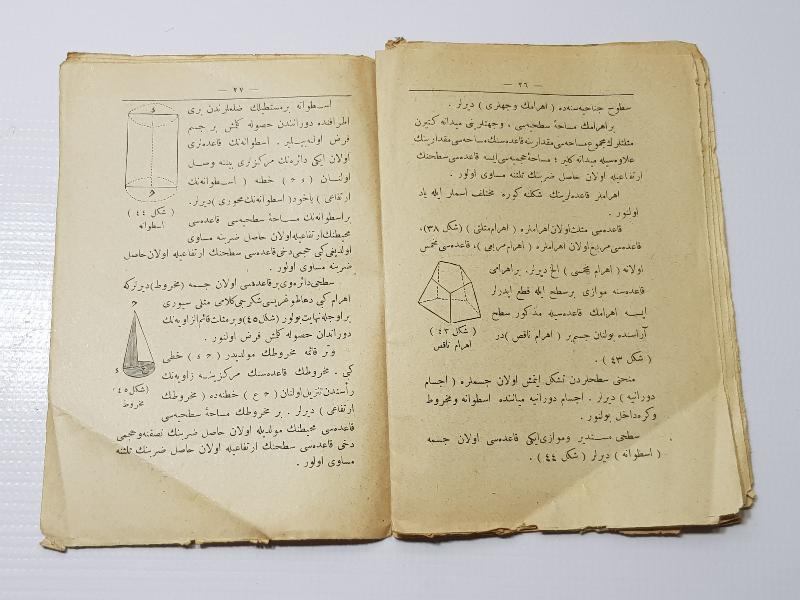 — ٢٦ —
سطوح جناحیه‌سنه ده ( اهرامك وجهلری ) دیرلر .
بر اهرامك مساحهٔ سطحیه‌سی ، وجهلرینی میدانه کتیرن
مثلثلرك مجموع مساحه‌سی مقدارینه قاعده‌سنك مساحه‌سی مقدارینك
علاوه‌سیله میدانه کلیر ؛ مساحهٔ حجمیه‌سی ایسه قاعده‌سی سطحنك
ارتفاعیله اولان حاصل ضربنك ثلثنه مساوی اولور .
اهراملر قاعده‌لرینك شکلنه کوره مختلف اسملر ایله یاد
اولنور .
قاعده‌سی مثلث اولان اهراملره ( اهرام مثلثی ) ( شکل ٣٨ ) ،
قاعده‌سی مربع اولان اهراملره ( اهرام مربعی ) ، قاعده‌سی مخمس
اولانه ( اهرام مخمسی ) الخ دیرلر . بر اهرامی
قاعده‌سنه موازی بر سطح ایله قطع ایدرلر
ایسه اهرامك قاعده‌سیله مذکور سطح
آراسنده بولنان جسم بر ( اهرام ناقص ) در
( شکل ٤٣ ) .
( شکل ٤٣ )
اهرام ناقص
منحنی سطحلردن تشکل ایتمش اولان جسملره ( اجسام
دورانیه ) دیرلر . اجسام دورانیه میاننده اسطوانه و مخروط
و کره داخل بولنور .
سطحی مستدیر و موازی ایکی قاعده‌سی اولان جسمه
( اسطوانه ) دیرلر ( شکل ٤٤ ) .
— ٢٧ —
اسطوانه بر مستطیلك ضلعلرندن بری
اطرافنده دورانندن حصوله کلمش بر جسم
فرض اولنه‌بیلیر . اسطوانه‌نك قاعده‌لری
اولان ایکی دائره‌نك مرکزلری بیننه وصل
اولنان ( ء ﻫ ) خطنه ( اسطوانه‌نك
ارتفاعی ) یاخود ( اسطوانه‌نك محوری ) دیرلر .
( شکل ٤٤ )
اسطوانه
بر اسطوانه‌نك مساحهٔ سطحیه‌سی قاعده‌سی
محیطنك ارتفاعیله اولان حاصل ضربنه مساوی
اولدیغی کبی حجمی دخی قاعده‌سی سطحنك ارتفاعیله اولان حاصل
ضربنه مساوی اولور .
سطحی دائره‌وی بر قاعده‌سی اولان جسمه ( مخروط ) دیرلر که
اهرام کبی دها طوغریسی شکرجی کلاهی مثللی سیوری
بر اوجله نهایت بولور ( شکل ٤٥ ) و بر مثلث قائم الزاویه‌نك
دوراندن حصوله کلمش فرض اولنور .
وتر قائمه مخروطك مولدیدر ( ﺣ ء ) خطی
کبی . مخروطك قاعده‌سنك مرکزینه زاویه‌نك
رأسندن تنزیل اولنان ( ﺣ ع ) خطنه‌ده ( مخروطك
ارتفاعی ) دیرلر . بر مخروطك مساحهٔ سطحیه‌سی
( شکل ٤٥ )
مخروط
قاعده‌سی محیطنك مولدیله اولان حاصل ضربنك نصفنه و حجمی
دخی قاعده‌سی سطحنك ارتفاعیله اولان حاصل ضربنك ثلثنه
مساوی اولور .